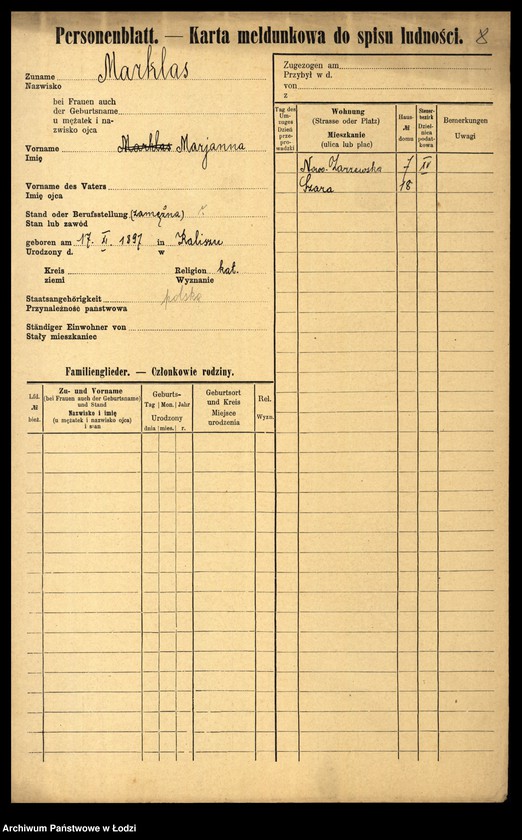 Personenblatt. — Karta meldunkowa do spisu ludności. 8
Zuname Marklas
Nazwisko
bei Frauen auch
der Geburtsname
u mężatek i na-
zwisko ojca
Vorname Marklas Marjanna
Imię
Vorname des Vaters
Imię ojca
Stand oder Berufsstellung (zamężna)
Stan lub zawód
geboren am 17. XI. 1897 in Kaliszu
Urodzony d. w
Kreis Religion kat.
ziemi Wyznanie
Staatsangehörigkeit polska
Przynależność państwowa
Ständiger Einwohner von
Stały mieszkaniec
Familienglieder. — Członkowie rodziny.
Lfd.
№
bież.
Zu- und Vorname
(bei Frauen auch der Geburtsname)
und Stand
Nazwisko i imię
(u mężatek i nazwisko ojca)
i stan
Geburts-
Tag Mon. Jahr
Urodzony
dnia mies. r.
Geburtsort
und Kreis
Miejsce
urodzenia
Rel.
Wyzn.
Zugezogen am
Przybył w d.
von
z
Tag des
Um-
zuges
Dzień
prze-
pro-
wadzki
Wohnung
(Strasse oder Platz)
Mieszkanie
(ulica lub plac)
Haus-
№
domu
Steuer-
bezirk
Dziel-
nica
podat-
kowa
Bemerkungen
Uwagi
Nowo-Zarzewska 7 XV
Szara 18
Archiwum Państwowe w Łodzi